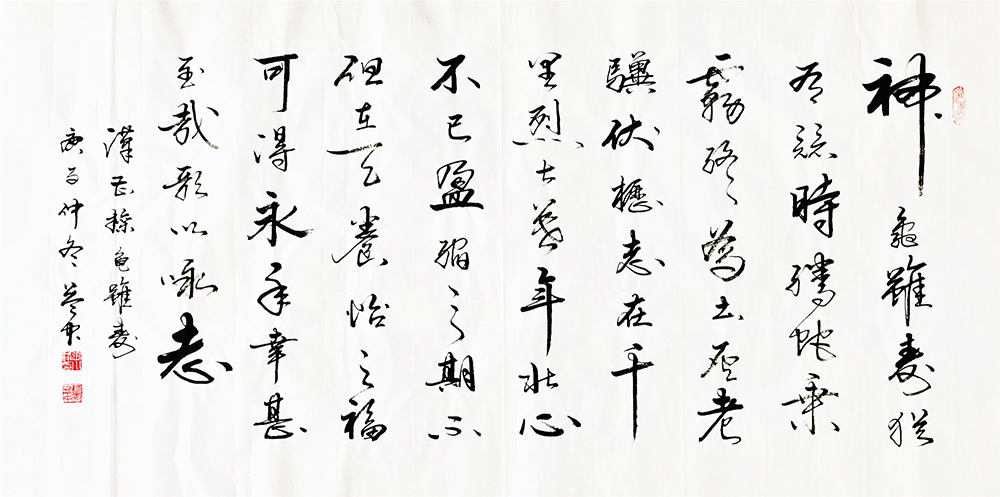 神龜雖壽猶
有竟時騰蛇乘
霧終〻為土灰老
驥伏櫪志在千
里烈士暮年壯心
不已盈縮之期不
但在天養怡之福
可得永年幸甚
至哉歌以詠志
漢曹操龜雖壽
庚子仲冬